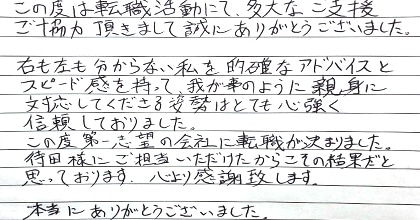 この度は転職活動にて、多大なご支援
ご協力頂きまして誠にありがとうございました。
右も左も分からない私を的確なアドバイスと
スピード感を持って、我が事のように親身に
対応してくださる姿勢はとても心強く
信頼しておりました。
この度第一志望の会社に転職が決まりました。
待田様にご担当いただけたからこその結果だと
思っております。心より感謝致します。
本当にありがとうございました。